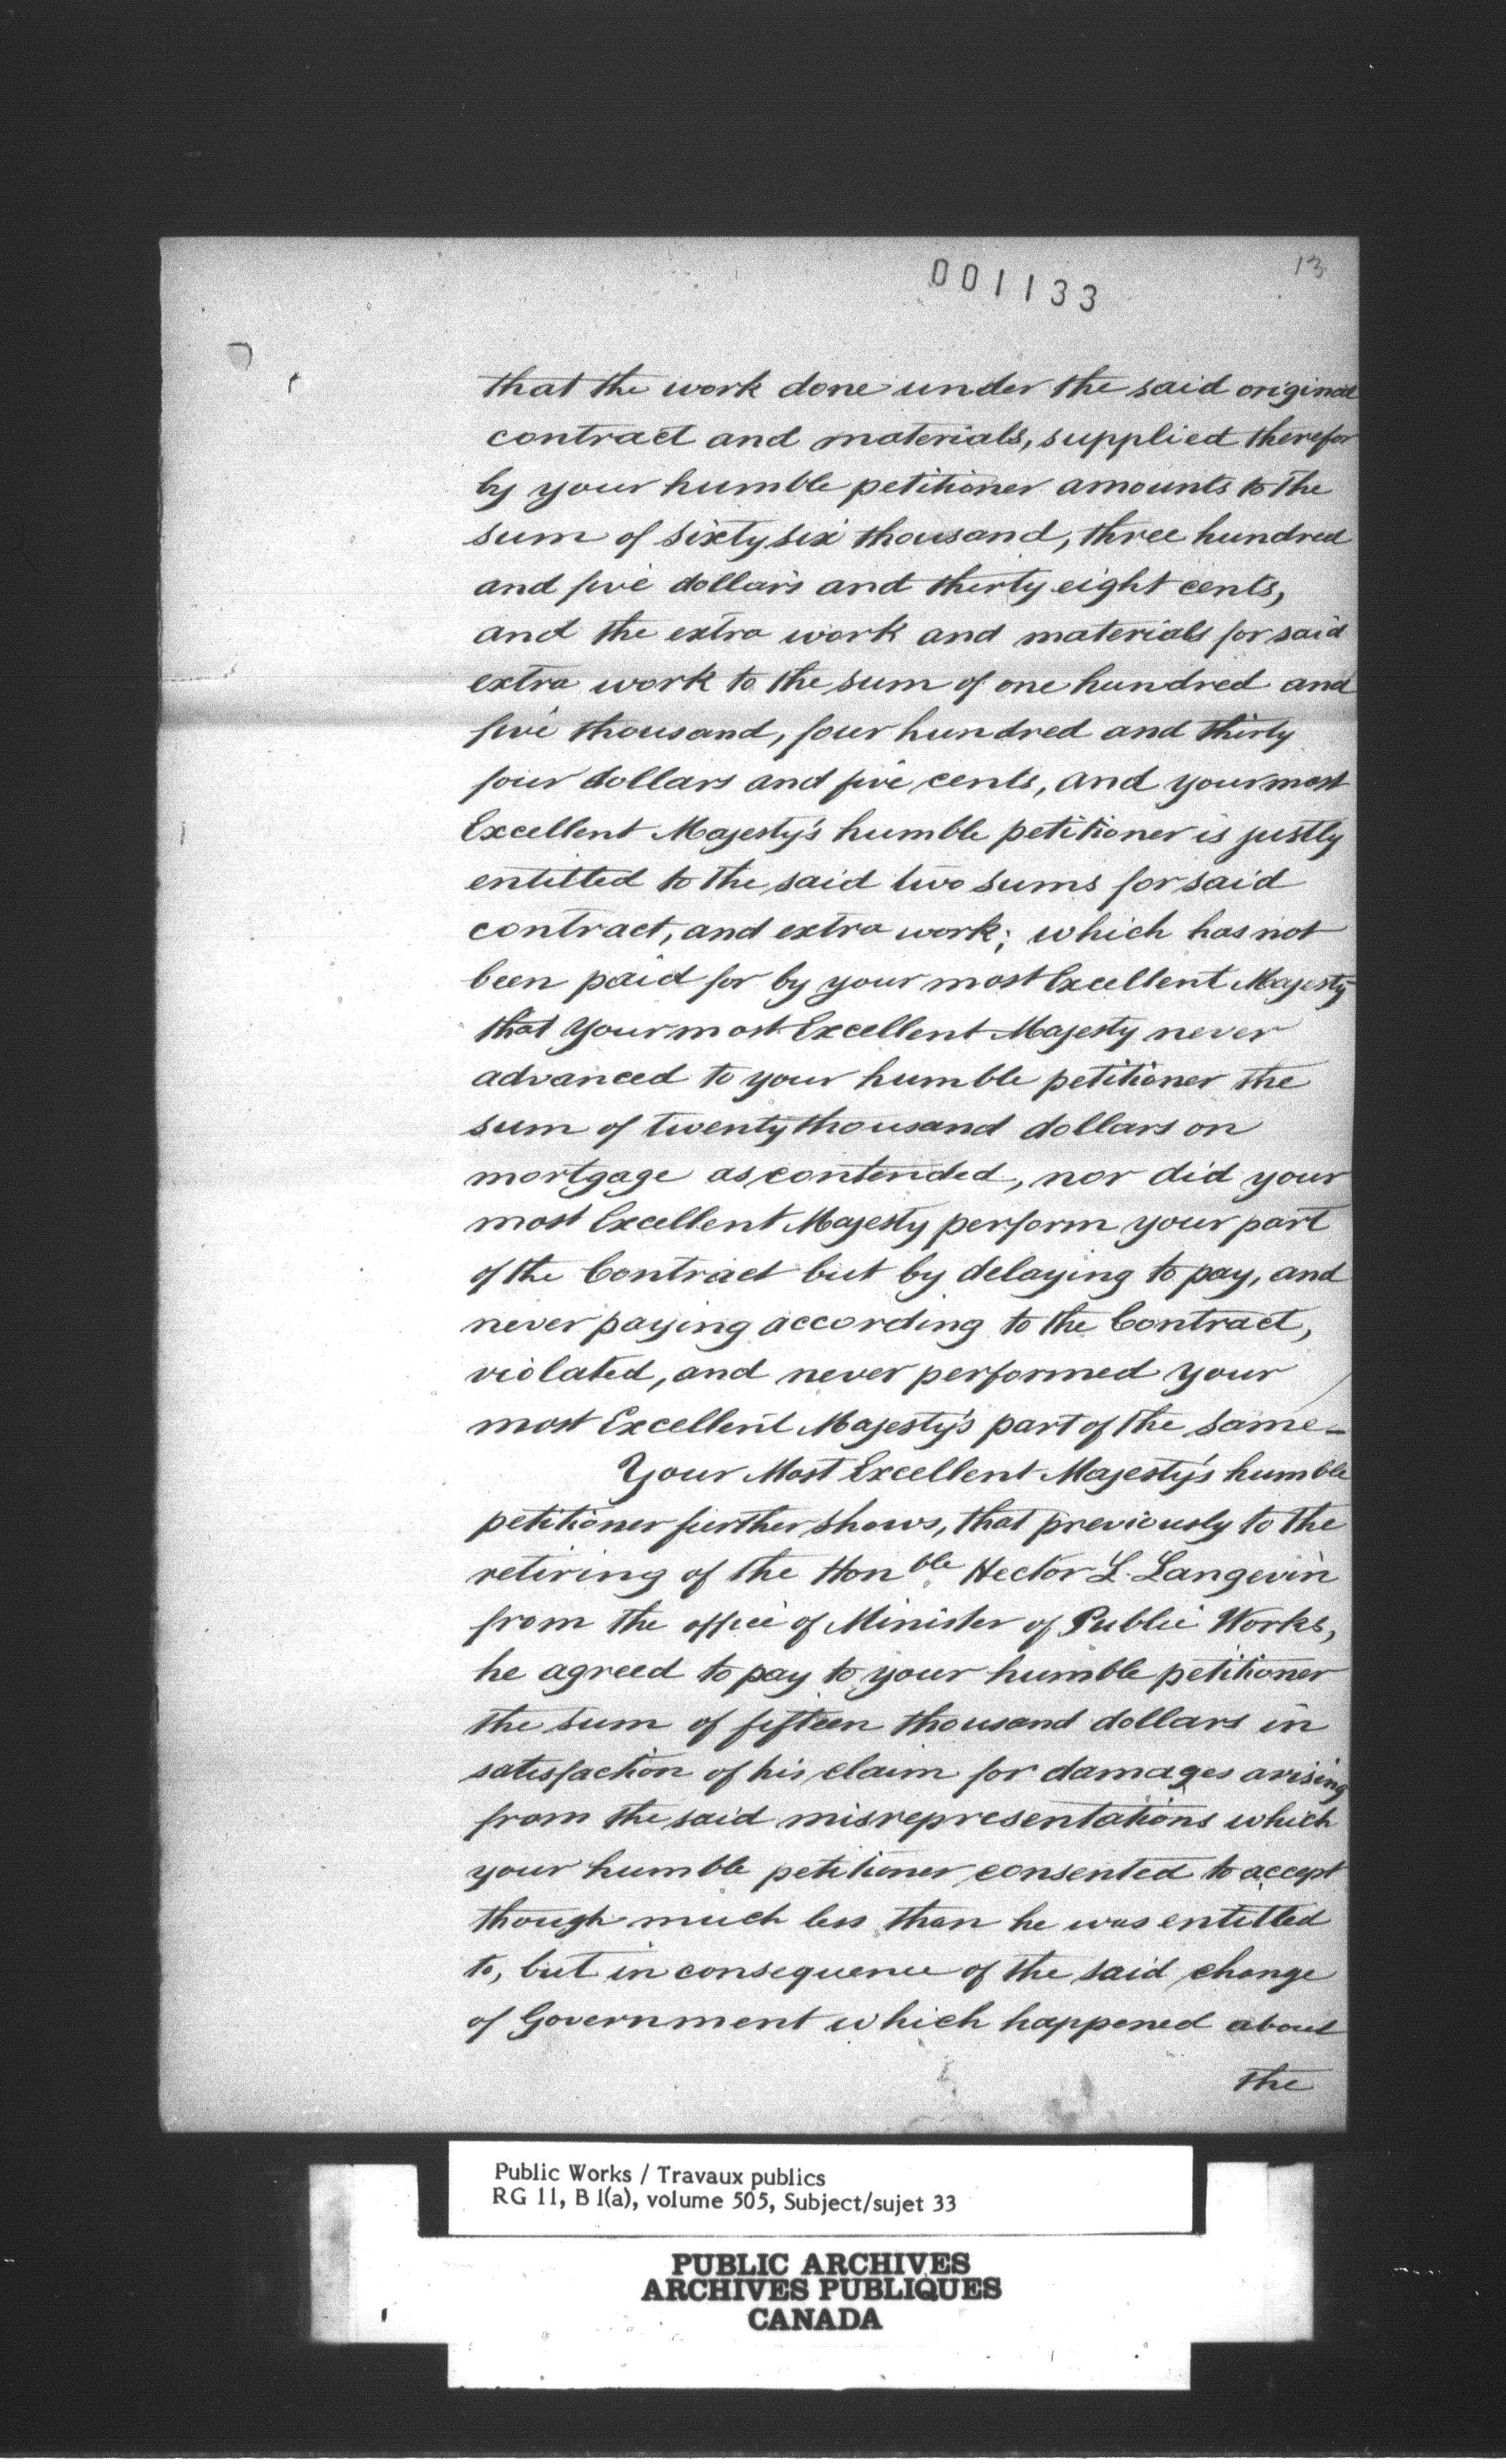 001133
13
that the work done under the said original
contract and materials, supplied therefor
by your humble petitioner amounts to the
sum of sixty six thousand, three hundred
and five dollars and thirty eight cents,
and the extra work and materials for said
extra work to the sum of one hundred and
five thousand, four hundred and thirty
four dollars and five cents, and your most
Excellent Majesty's humble petitioner is justly
entitled to the said two sums for said
contract, and extra work; which has not
been paid for by your most Excellent Majesty
that your most Excellent Majesty never
advanced to your humble petitioner the
sum of twenty thousand dollars on
mortgage as contended, nor did your
most Excellent Majesty perform your part
of the Contract but by delaying to pay, and
never paying according to the Contract,
violated, and never performed your
most Excellent Majesty's part of the same_
Your Most Excellent Majesty's humble
petitioner further shows, that previously to the
retiring of the Honble Hector L. Langevin
from the office of Minister of Public Works,
he agreed to pay to your humble petitioner
the sum of fifteen thousand dollars in
satisfaction of his claim for damages arising
from the said misrepresentations which
your humble petitioner consented to accept
though much less than he was entitled
to, but in consequence of the said change
of Government which happened about
the
Public Works / Travaux publics
RG 11, B 1(a), volume 505, Subject/sujet 33
PUBLIC ARCHIVES
ARCHIVES PUBLIQUES
CANADA